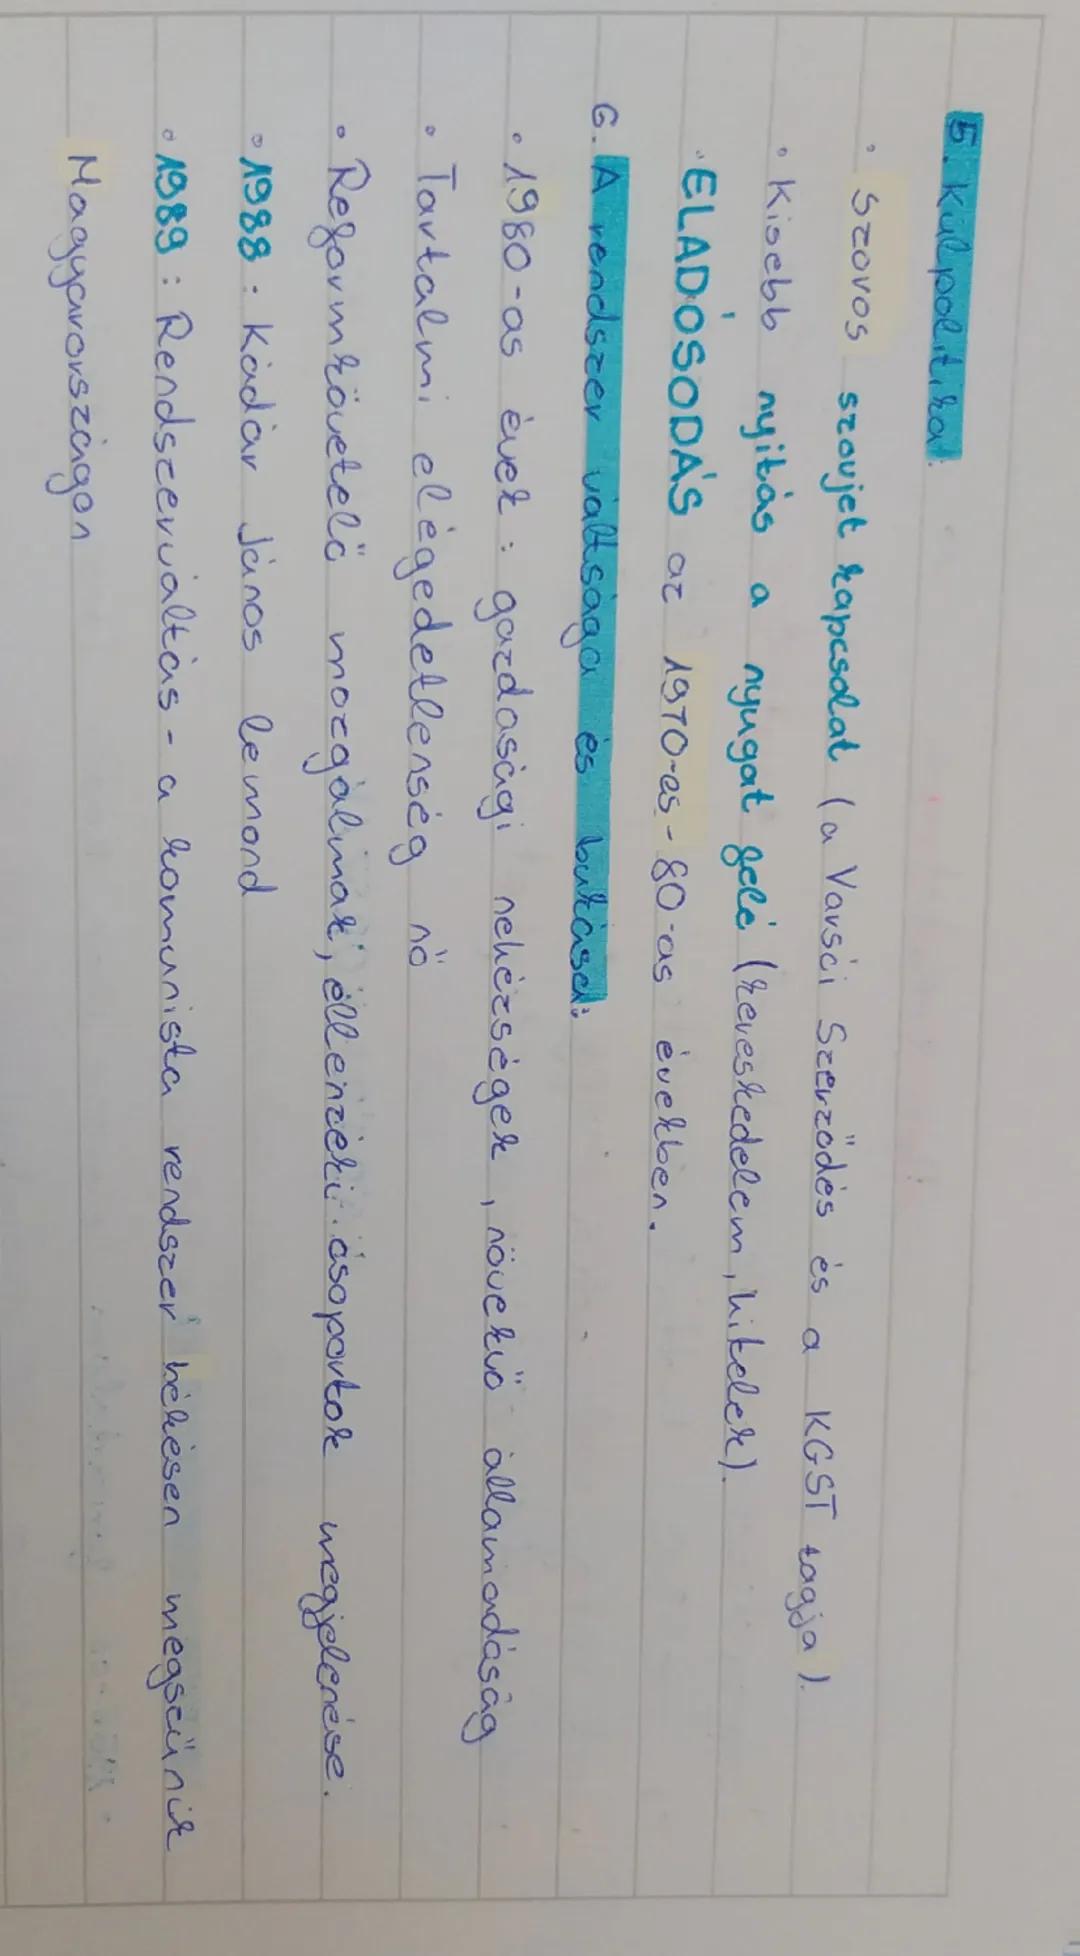 5. Külpolitika:
• Szoros szovjet kapcsolat (a Varsói Szerződés és a KGST tagja).
• Kisebb nyitás a nyugat felé (kereskedelem, hitelek).
• ELADÓSODÁS az 1970-es-80-as években.
6. A rendszer váltsága és bukása:
• 1980-as évek: gazdasági nehézségek, növekvő államadóság
• Tartalmi elégedetlenség nő
• Reformkövetelő mozgalmak, ellenzéki csoportok megjelenése.
• 1988: Kádár János lemond
• 1989: Rendszerváltás - a komunista rendszer békésen megszűnik
Magyarországon